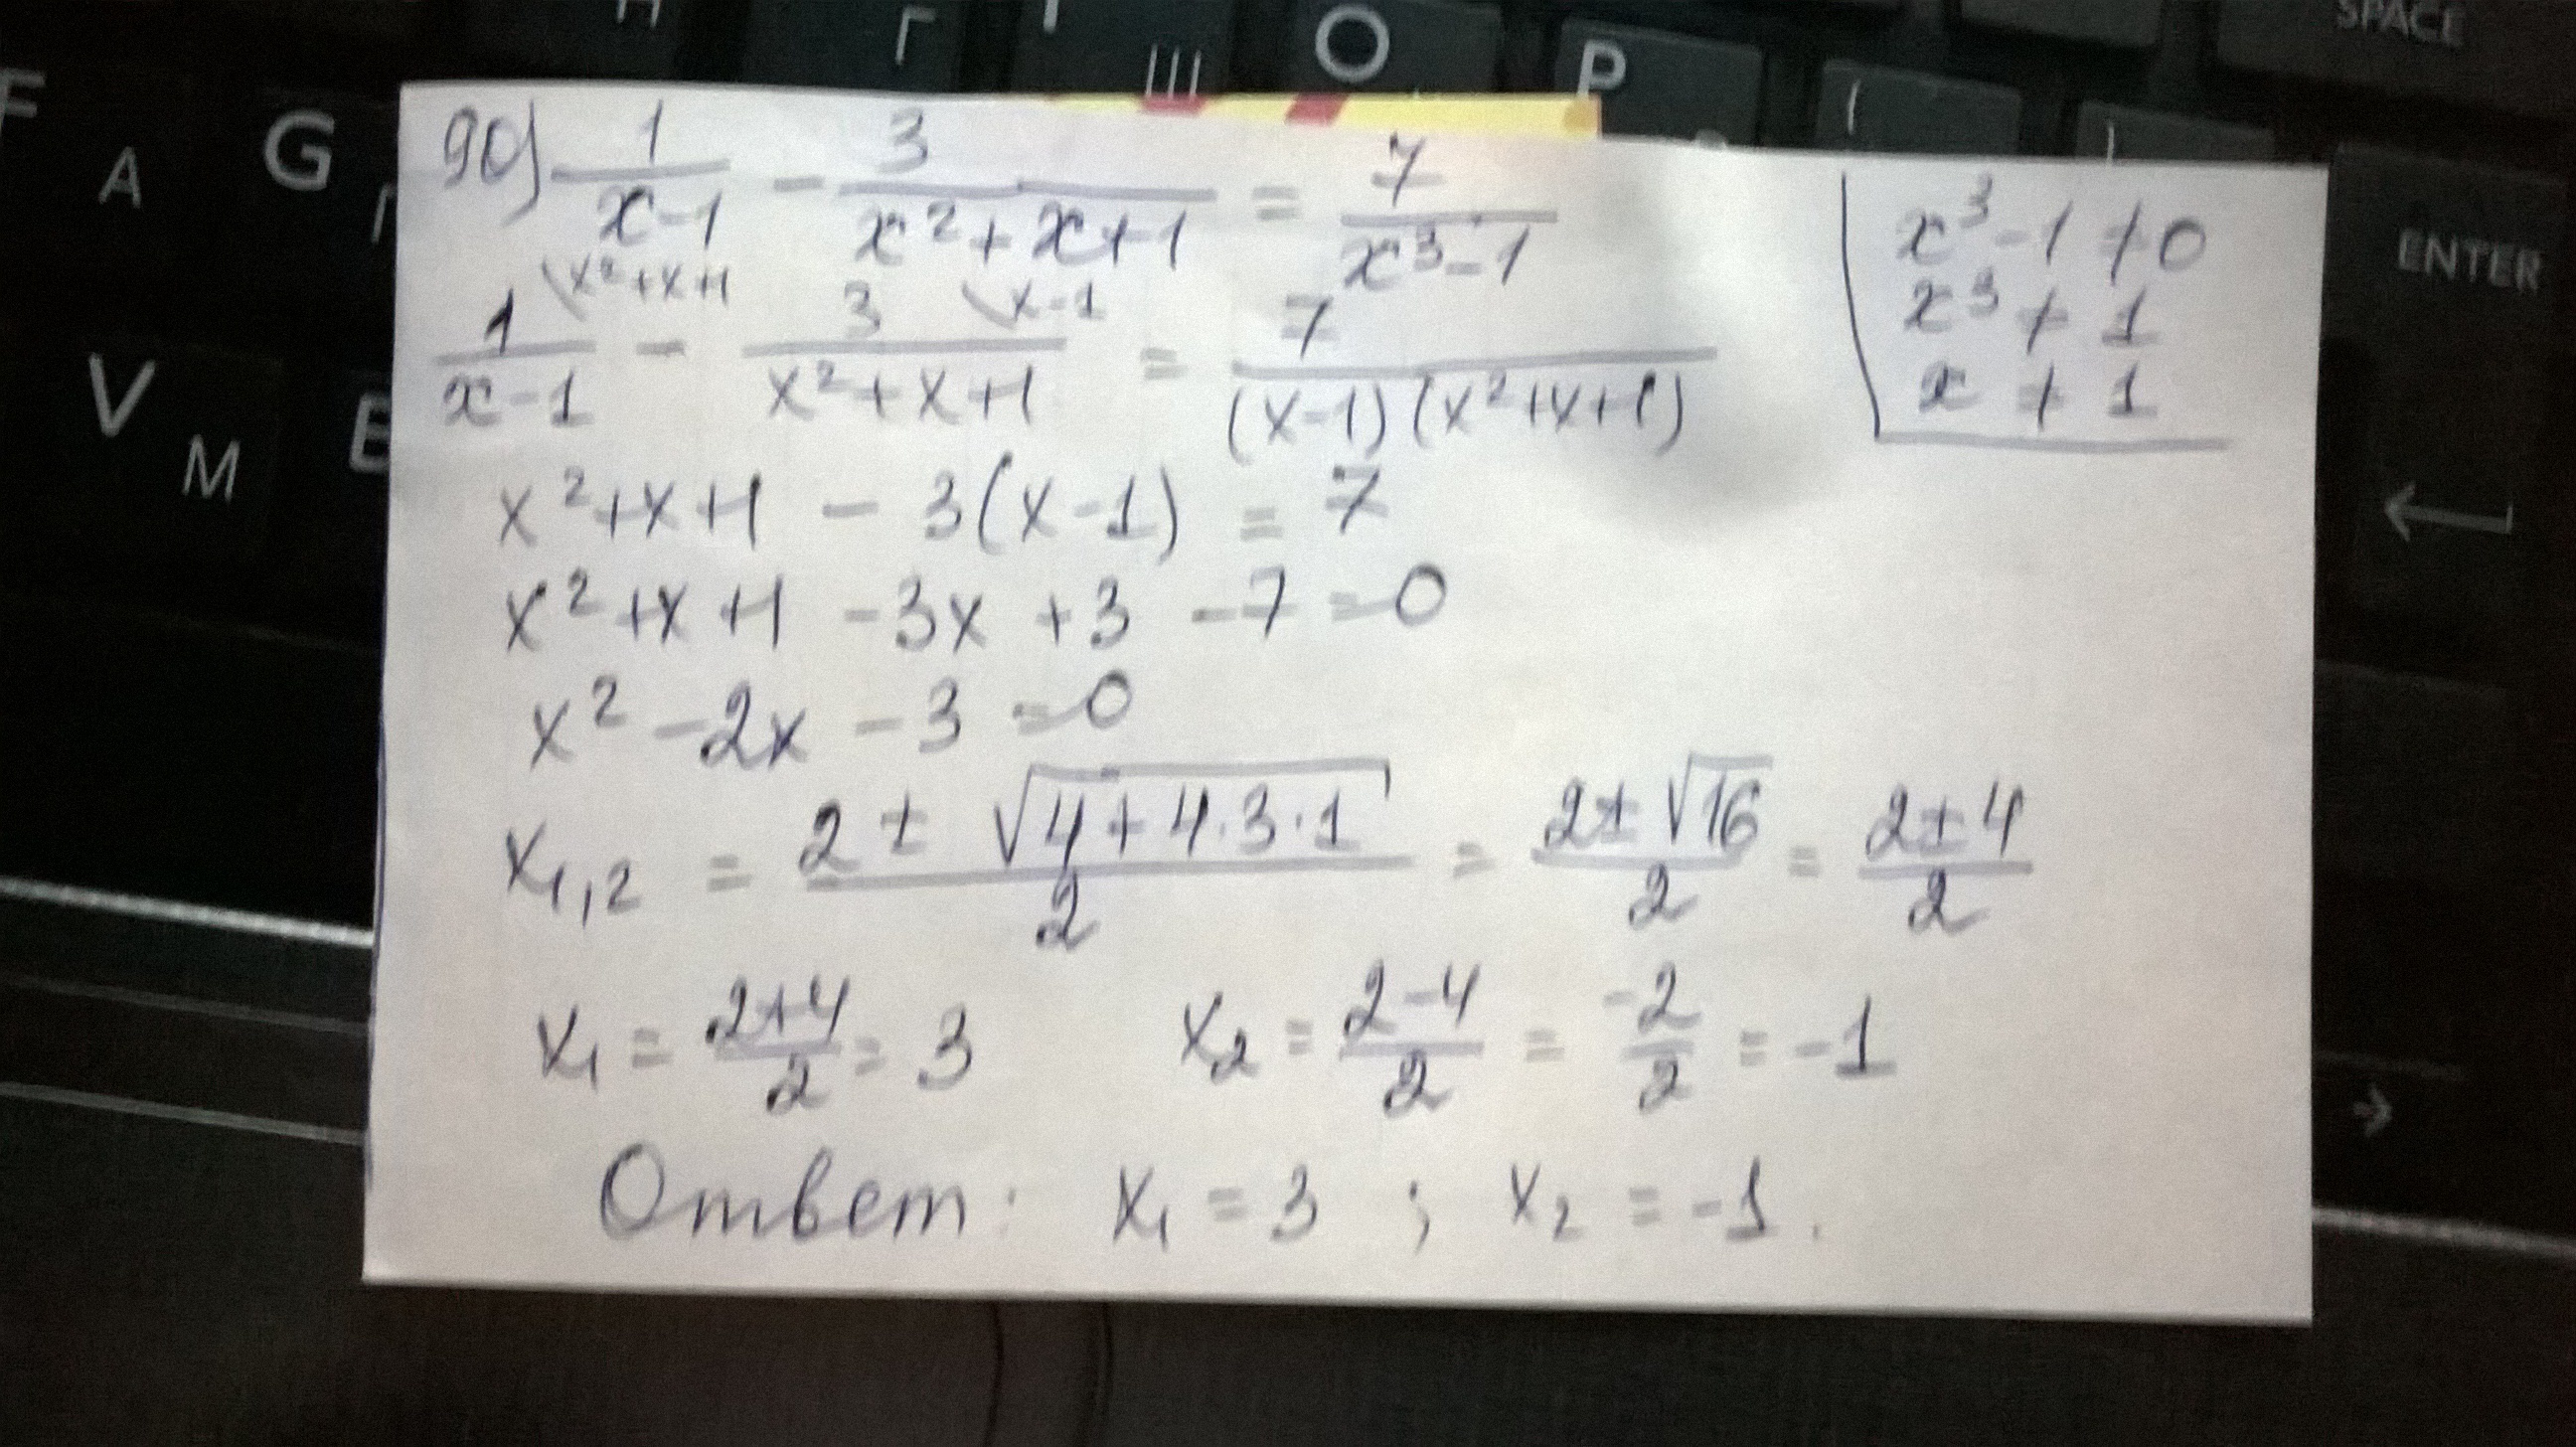 H Г Ш O P SPACE
F A G П
90) 1/(x-1) - 3/(x²+x+1) = 7/(x³-1)
x³-1≠0
x³ ≠ 1
x ≠ 1
ENTER
1/(x-1) \x²+x+1 - 3/(x²+x+1) \x-1 = 7/((x-1)(x²+x+1))
V M B
x²+x+1 - 3(x-1) = 7
←
x²+x+1 -3x +3 -7=0
x²-2x-3=0
x₁,₂ = (2±√(4+4·3·1))/2 = (2±√16)/2 = (2±4)/2
x₁ = (2+4)/2 = 3 x₂ = (2-4)/2 = -2/2 = -1
→
Ответ: x₁ = 3 ; x₂ = -1.